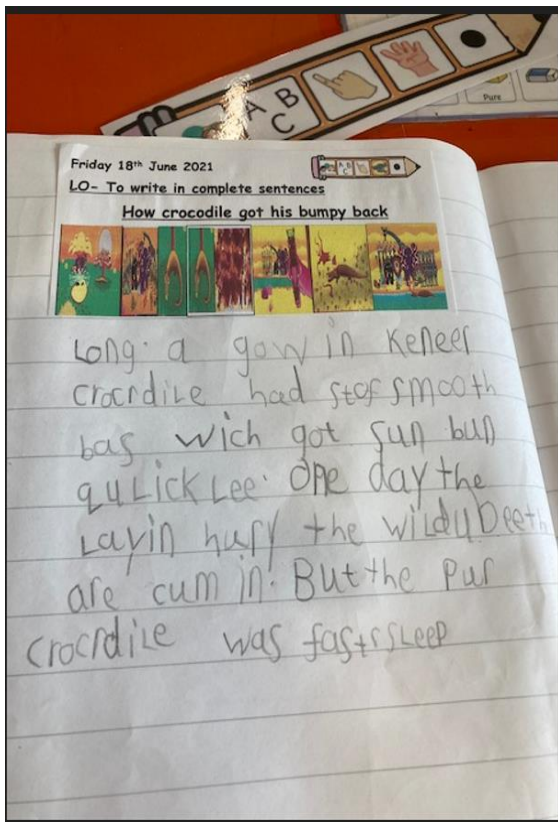 A B
C
Pure
Friday 18th June 2021
LO- To write in complete sentences
How crocodile got his bumpy back
Long. a gow in Keneer
crocrdile had stof smooth
bas wich got sun bun
quLick Lee. One day the
Layin hurf the wildu Deeth
are cum in. But the pur
crocrdile was fast sLeep